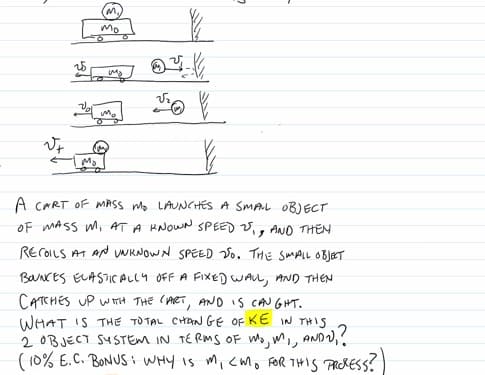 m₁
m₀
v₀
m₀
m₁
v₁
v₀
m₀
v₂
m₁
v+
m₁
m₀
A CART OF MASS m₀ LAUNCHES A SMALL OBJECT
OF MASS m₁ AT A KNOWN SPEED v₁, AND THEN
RECOILS AT AN UNKNOWN SPEED v₀. THE SMALL OBJECT
BOUNCES ELASTICALLY OFF A FIXED WALL, AND THEN
CATCHES UP WITH THE CART, AND IS CAUGHT.
WHAT IS THE TOTAL CHANGE OF KE IN THIS
2 OBJECT SYSTEM IN TERMS OF m₀, m₁, AND v₁?
(10% E.C. BONUS: WHY IS m₁ < m₀ FOR THIS PROCESS?)